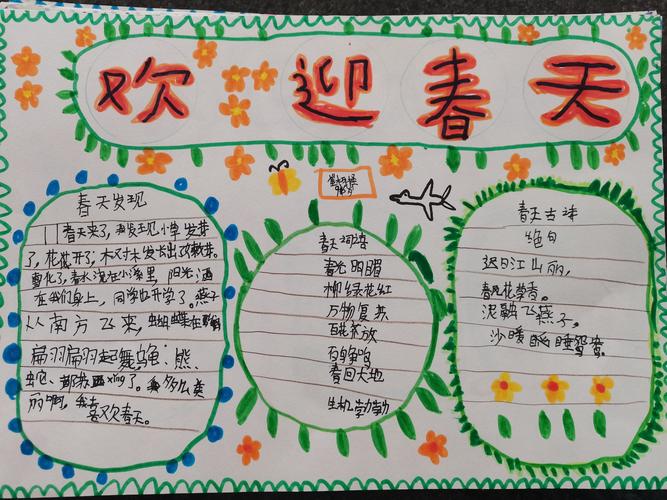 欢迎春天
春天发现
春天来了，我发现小草发芽
了，花花开了，木对木发长出了嫩芽。
雪化了，春水流在小溪里，阳光洒
在我们身上，同学也开学了。燕子
从南方飞来，蝴蝶在
扁羽扁羽起舞。熊、
蛇、都xing了。我多么美
丽啊，我
喜欢春天。
春天词语
春光明媚
柳绿花红
万物复苏
百花齐放
百鸟争鸣
春回大地
生机勃勃
春天古诗
绝句
迟日江山丽，
春风花草香。
泥融飞燕子，
沙暖睡鸳鸯。